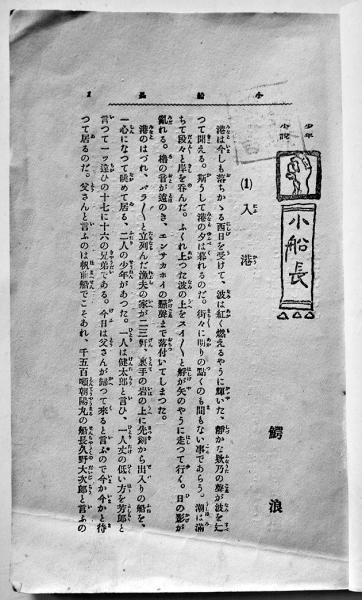 小船長
1
少年
小説
小船長
鰐浪
(1)入港
港は今しも落ちかゝる西日を受けて、波は紅く燃えるやうに輝いた、静かな欸乃の聲が波を辷
つて聞える。斯うして港の夕は暮れるのだ。街々に明りの點くのも間もない事であらう。潮は滿
ちて段々と岸を呑んだ。ふくれ上つた波の上をスイ〳〵と艀が矢のやうに走つて行く。日の影が
亂れる。櫓の音が遠のき、エンサカホイの懸聲まで落付いてしまつた。
港のはづれ、バラ〳〵と立列んだ漁夫の家が二三軒、裏手の岩の上に先刻から出入りの船を、
一心になつて眺めて居る、二人の少年があつた。一人は健太郎と言ひ、一人丈の低い方を芳郎と
言つて一ッ違ひの十七に十六の兄弟である。今日は父さんが歸つて來ると言ふので今か今かと待
つて居るのだ。父さんと言ふのは帆前船でこそあれ、千五百噸朝陽丸の船長久野大次郎と言ふの